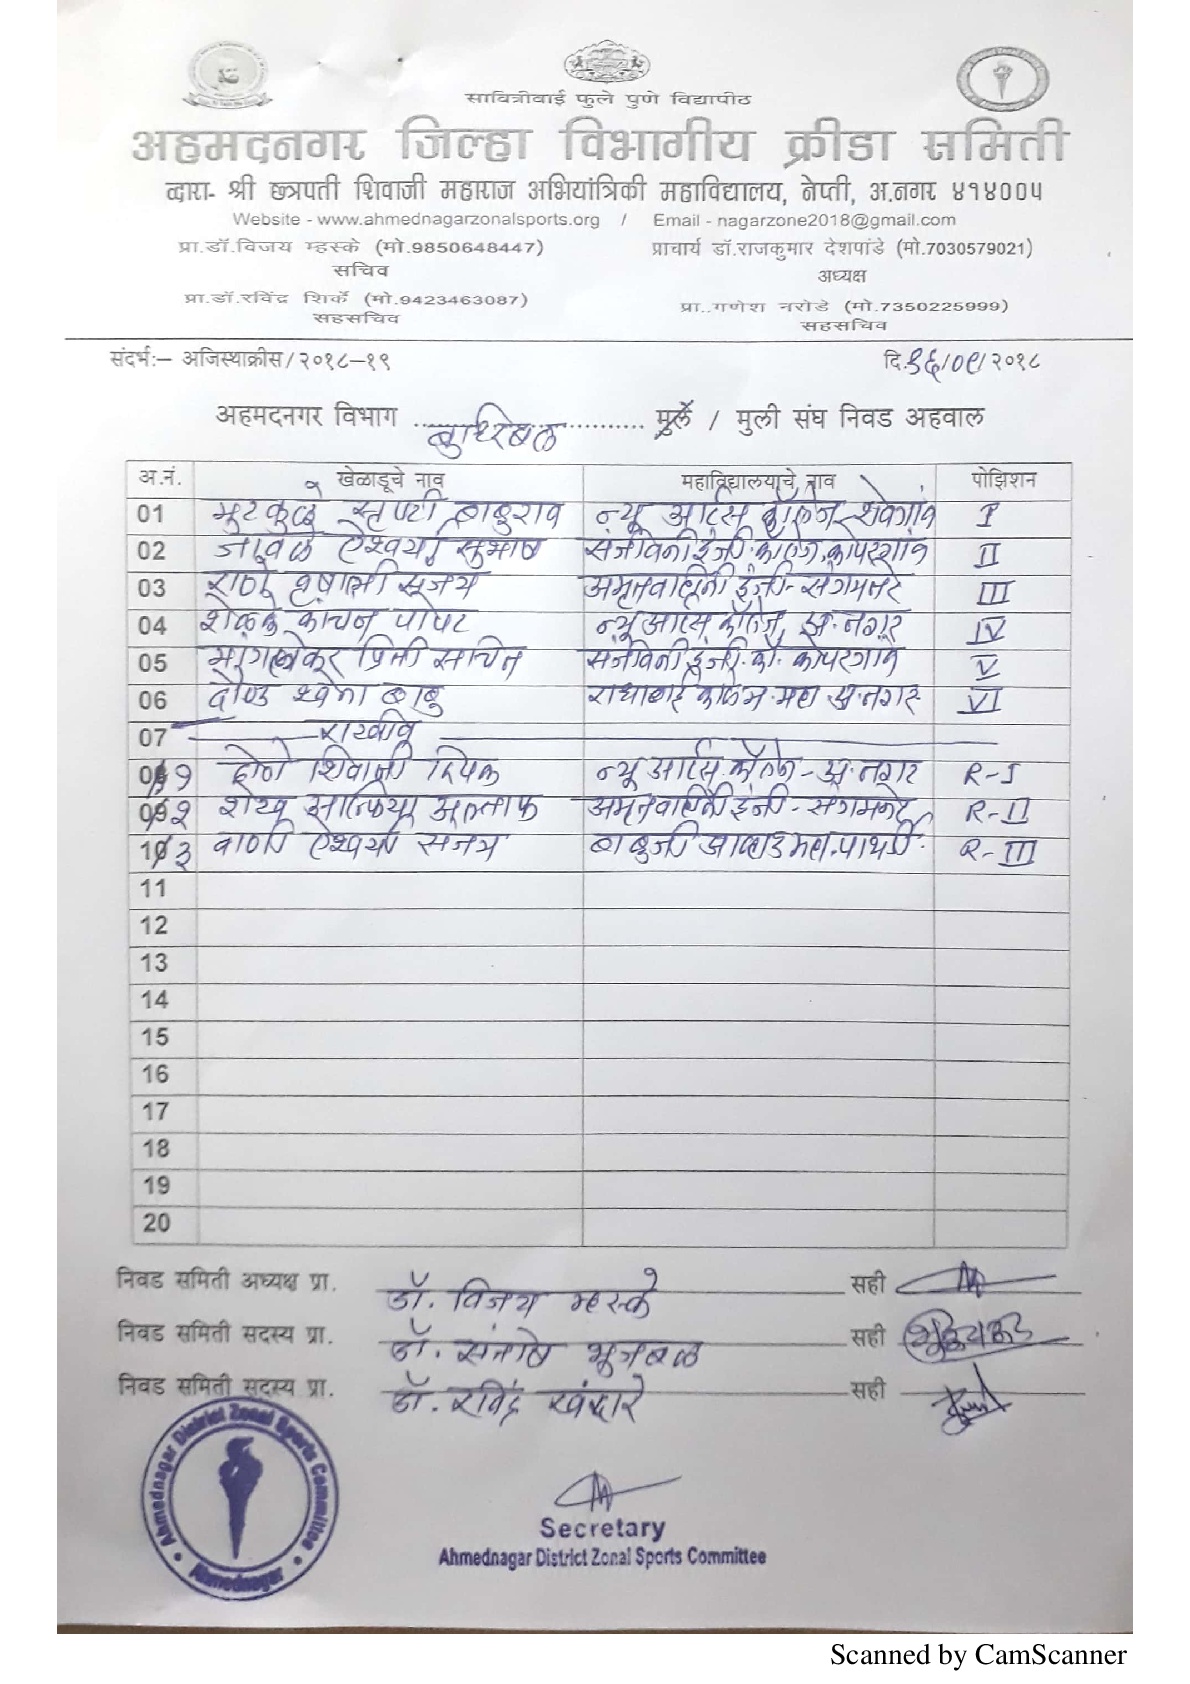 सावित्रीबाई फुले पुणे विद्यापीठ
अहमदनगर जिल्हा विभागीय क्रीडा समिती
द्वारा- श्री छत्रपती शिवाजी महाराज अभियांत्रिकी महाविद्यालय, नेप्ती, अ.नगर ४१४००५
Website - www.ahmednagarzonalsports.org / Email - nagarzone2018@gmail.com
प्रा.डॉ.विजय म्हस्के (मो.9850648447) प्राचार्य डॉ.राजकुमार देशपांडे (मो.7030579021)
सचिव अध्यक्ष
प्रा.डॉ.रविंद्र शिर्के (मो.9423463087) प्रा..गणेश नरोडे (मो.7350225999)
सहसचिव सहसचिव
संदर्भ:– अजिस्थाक्रीस/२०१८–१९ दि.१६/०९/२०१८
अहमदनगर विभाग बुध्दिबल मुले / मुली संघ निवड अहवाल
अ.नं. खेळाडूचे नाव महाविद्यालयाचे नाव पोझिशन
01 बाबुराव न्यू आर्टस् कॉलेज शेवगांव I
02 जावळे ऐश्वर्या सुभाष संजीवनी इंजी. कॉलेज, कोपरगांव II
03 वृषाली संजय अमृतवाहिनी इंजी- संगमनेर III
04 शेळके कांचन पोपट न्यू आर्टस् कॉलेज, अ.नगर IV
05 सचिन संजीवनी इंजी. कॉ. कोपरगांव V
06 बाबु राधाबाई काळे म. महा. अ.नगर VI
07 राखीव
१ शिवानी दिपक न्यू आर्टस् कॉलेज- अ.नगर R-I
२ शेख अल्ताफ अमृतवाहिनी इंजी- संगमनेर R-II
३ ऐश्वर्या संजय बाबुजी आव्हाड महा. पाथर्डी. R-III
11
12
13
14
15
16
17
18
19
20
निवड समिती अध्यक्ष प्रा. डॉ. विजय म्हस्के सही
निवड समिती सदस्य प्रा. डॉ. संतोष भुजबळ सही
निवड समिती सदस्य प्रा. डॉ. रविंद्र खंदारे सही
Ahmednagar District Zonal Sports Committee
Ahmednagar
Secretary
Ahmednagar District Zonal Sports Committee
Scanned by CamScanner